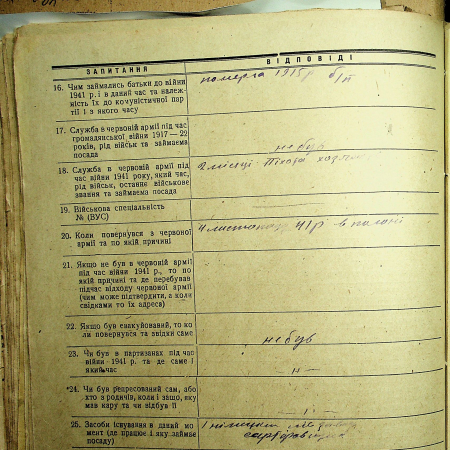 ЗАПИТАННЯ ВІДПОВІДІ
16. Чим займались батьки до війни
1941 р. і в даний час та належ-
ність їх до комуністичної пар
тії і з якого часу
померла 1915 р б/п
17. Служба в червоній армії під час
громадянської війни 1917 — 22
років, рід військ та займаема
посада
не був
18. Служба в червоній армії під
час війни 1941 року, який час,
рід військ, останне військове
звання та займаема посада
2 місяці Піхота
19. Військова спеціальність
№ (ВУС)
20. Коли повернувся з червоної
армії та по якій причині
4 листопада 41 р в
21. Якщо не був в червоній армії
під час війни 1941 р., то по
якій причині та де перебував
підчас відходу червоної армії
(чим може підтвердити, а коли
свідками то їх адреса)
22. Якщо був евакуйований, то ко
ли повернувся та звідки саме
не був
23. Чи був в партизанах під час
війни 1941 р. та де саме і
який час
24. Чи був репресований сам, або
хто з родичів, коли і защо, яку
мав кару та чи відбув її
25. Засоби існування в даний мо
мент (де працює і яку займає
посаду)